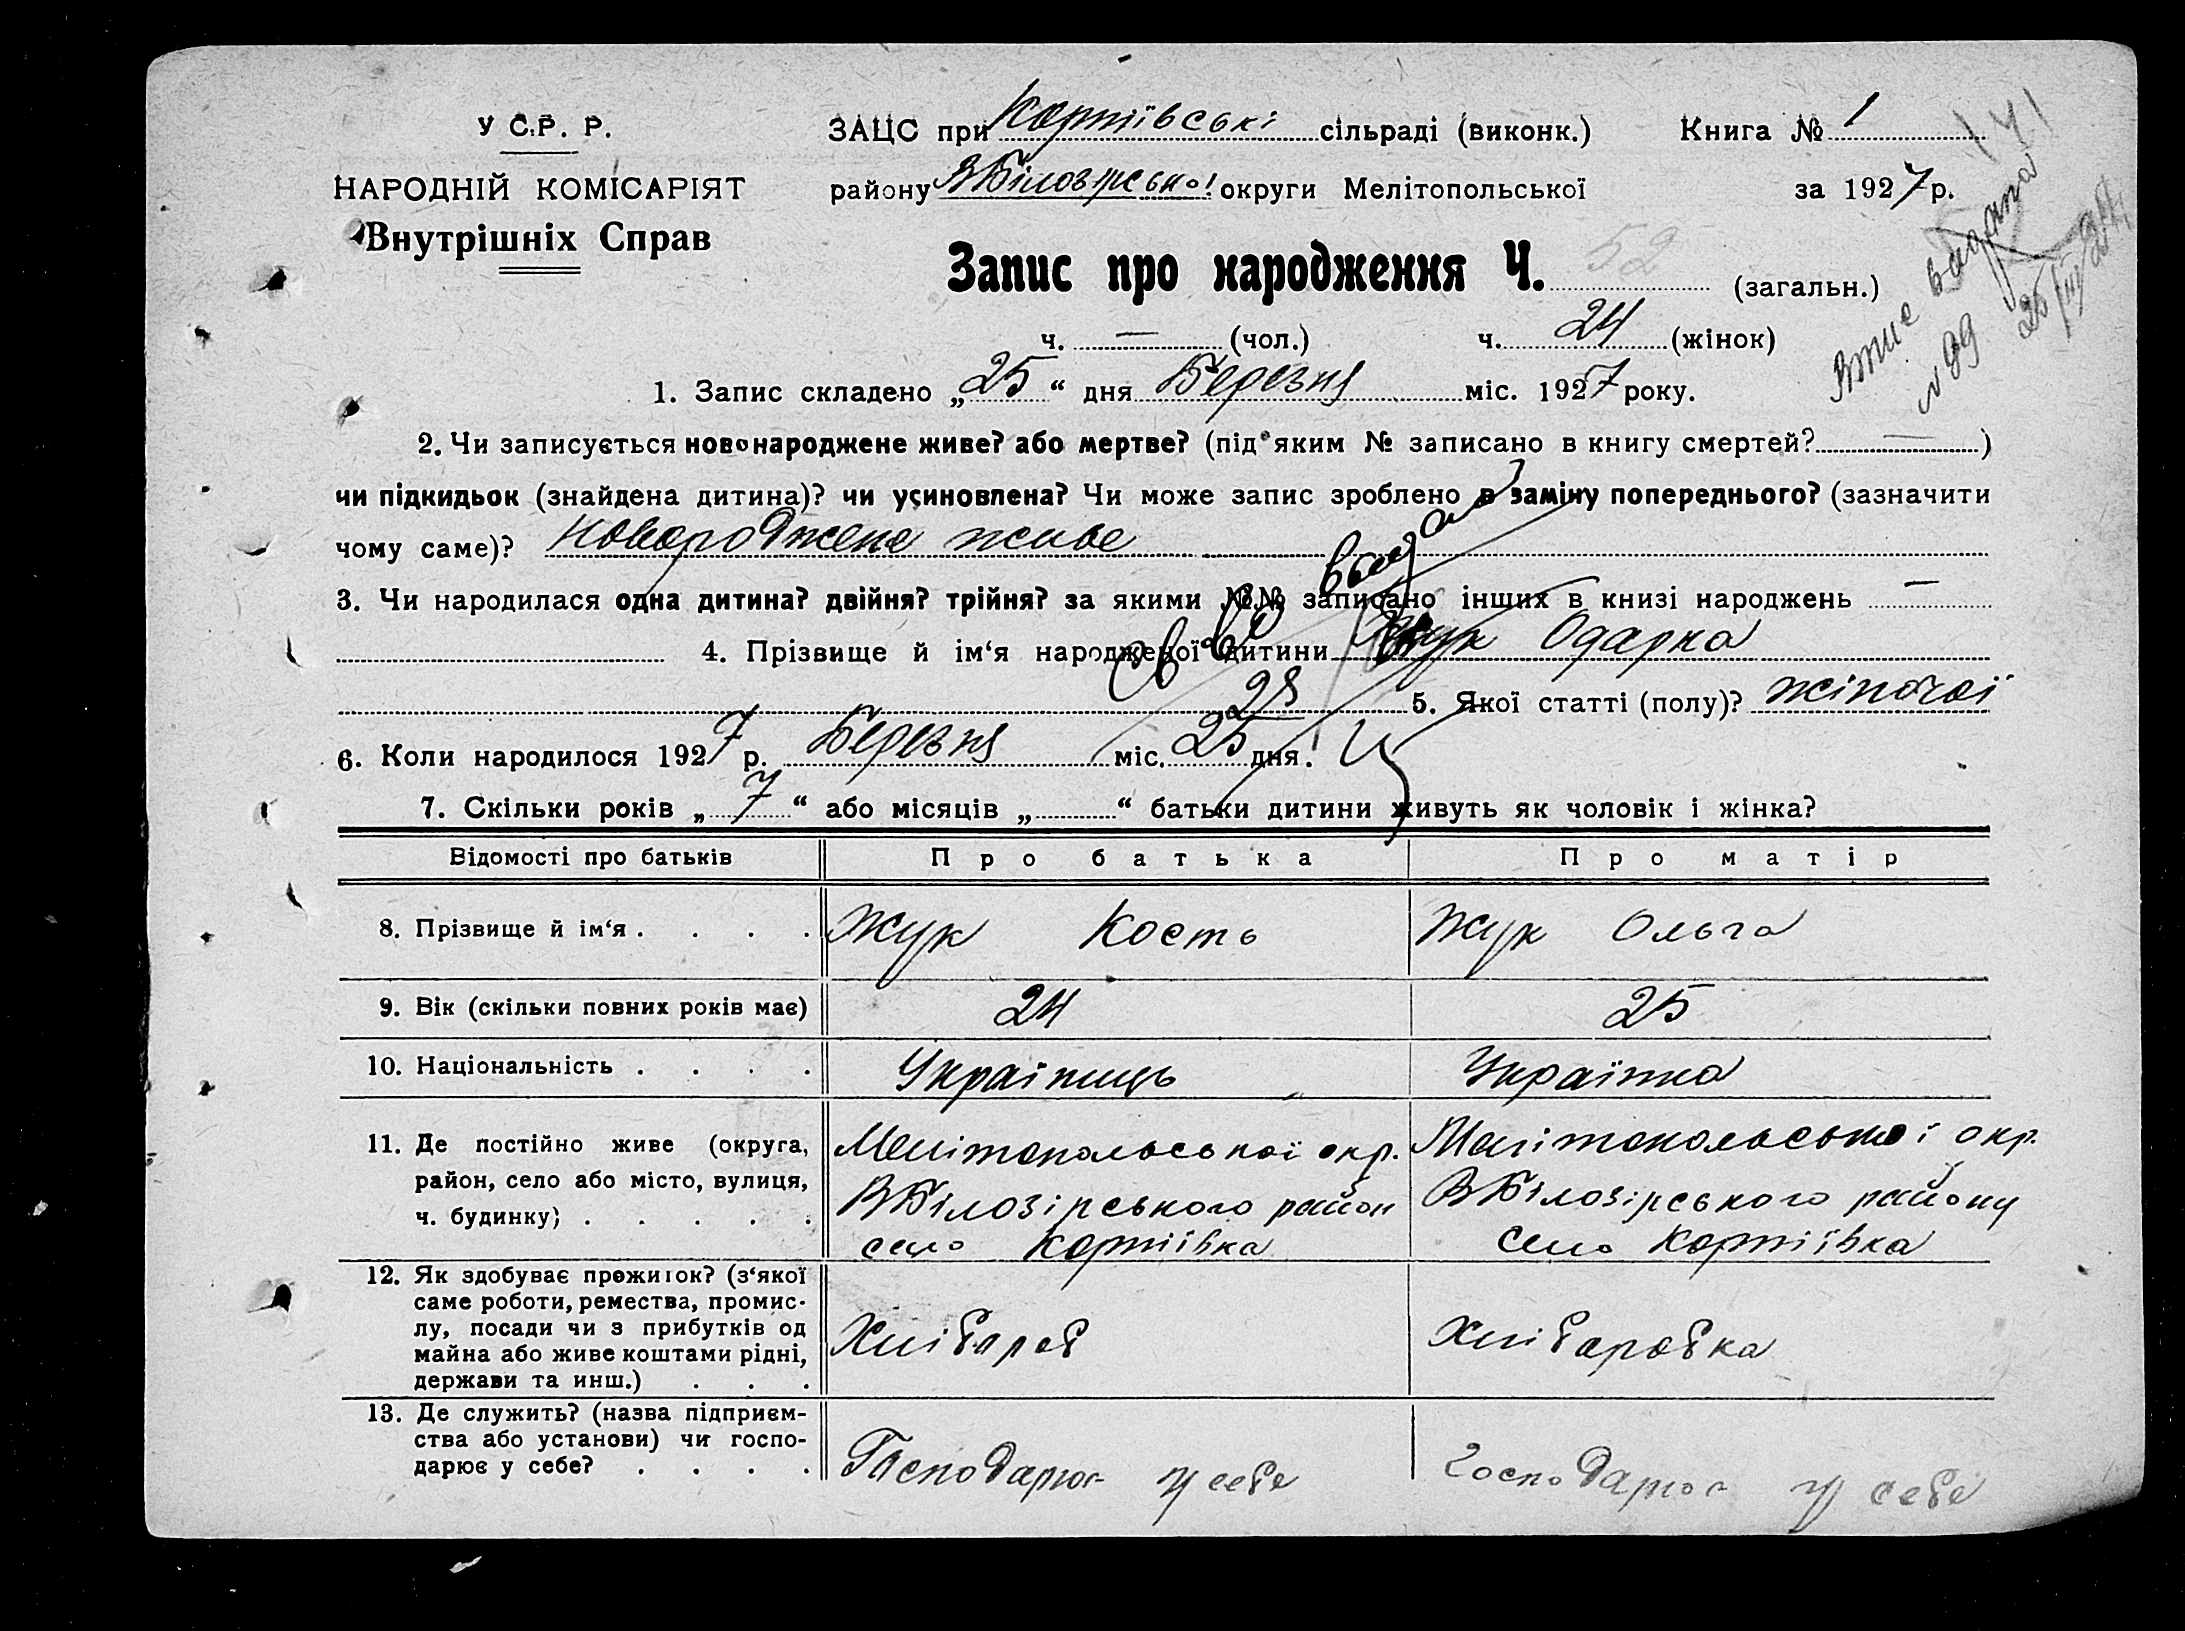 У С. Р. Р.
НАРОДНІЙ КОМІСАРІЯТ
Внутрішніх Справ
ЗАЦС при Кортіївські сільраді (виконк.) Книга № 1
району ВБілозірської округи Мелітопольської за 1927 р.
Запис про народження Ч. 52 (загальн.)
ч. — (чол.) ч. 24 (жінок)
1. Запис складено „25“ дня Березня міс. 1927 року.
2. Чи записується новонароджене живе? або мертве? (під яким № записано в книгу смертей? — )
чи підкидьок (знайдена дитина)? чи усиновлена? Чи може запис зроблено в заміну попереднього? (зазначити
чому саме)? новороджене живе
3. Чи народилася одна дитина? двійня? трійня? за якими №№ записано інших в книзі народжень —
4. Прізвище й ім‘я народженої дитини Жук Одарка
5. Якої статті (полу)? жіночої
28
6. Коли народилося 1927 р. Березня міс. 25 дня.
7. Скільки років „7“ або місяців „ “ батьки дитини живуть як чоловік і жінка?
Відомості про батьків Про батька Про матір
8. Прізвище й ім‘я . . . . Жук Кость Жук Ольга
9. Вік (скільки повних років має) 24 25
10. Національність . . . . Українищь Українка
11. Де постійно живе (округа, район, село або місто, вулиця, ч. будинку) . . . . .
Мелітопольської окр. Мелітопольської окр.
ВБілозірського район ВБілозірського району
село Кортіївка село Кортіївка
12. Як здобуває прожиток? (з‘якої саме роботи, ремества, промис-
лу, посади чи з прибутків од
майна або живе коштами рідні,
держави та инш.) . . .
Хлібароб Хлібаробка
13. Де служить? (назва підприєм-
ства або установи) чи госпо-
дарює у себе? . . . .
Господарює у себе господарює у себе